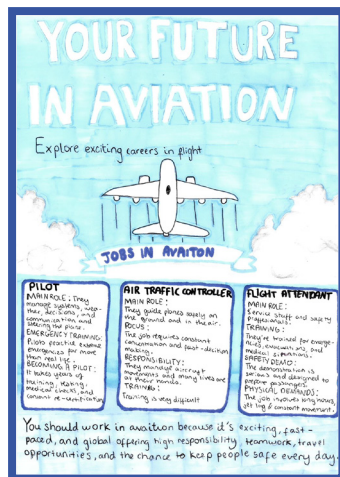 YOUR FUTURE
IN AVIATION
Explore exciting careers in flight
JOBS IN AVAITON
PILOT
MAIN ROLE: They
manage systems, wea-
ther, decisions, and
communication and
steering the plane.
EMERGENCY TRAINING:
Pilots practise extreme
emergencies far more
than real life.
BECOMING A PILOT:
It takes years of
training, testing,
medical checks, and
constant re-certification
AIR TRAFFIC CONTROLLER
MAIN ROLE:
They guide planes safely on
the ground and in the air.
FOCUS:
The job requires constant
concentration and fast-dicition
making.
RESPONSIBILITY:
They manage aircraft
movements and many lives are
at their hands.
TRAINING:
Training is very difficult
FLIGHT ATTENDANT
MAIN ROLE:
Service staff and safety
professionals.
TRAINING:
They're trained for emerge-
ncies, evacuations, and
medical situations.
SAFETY DEMO:
The demonstration is
serious and designed to
prepare passengers.
PHYSICAL DEMANDS:
The job involves long hours,
jet lag & constant movement.
You should work in avaition because it's exciting, fast-
paced, and global offering high responsibility, teamwork, travel
opportunities, and the chance to keep people safe every day.